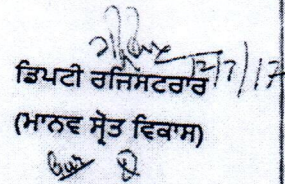 12/7/17
ਡਿਪਟੀ ਰਜਿਸਟਰਾਰ
(ਮਾਨਵ ਸ੍ਰੋਤ ਵਿਕਾਸ)